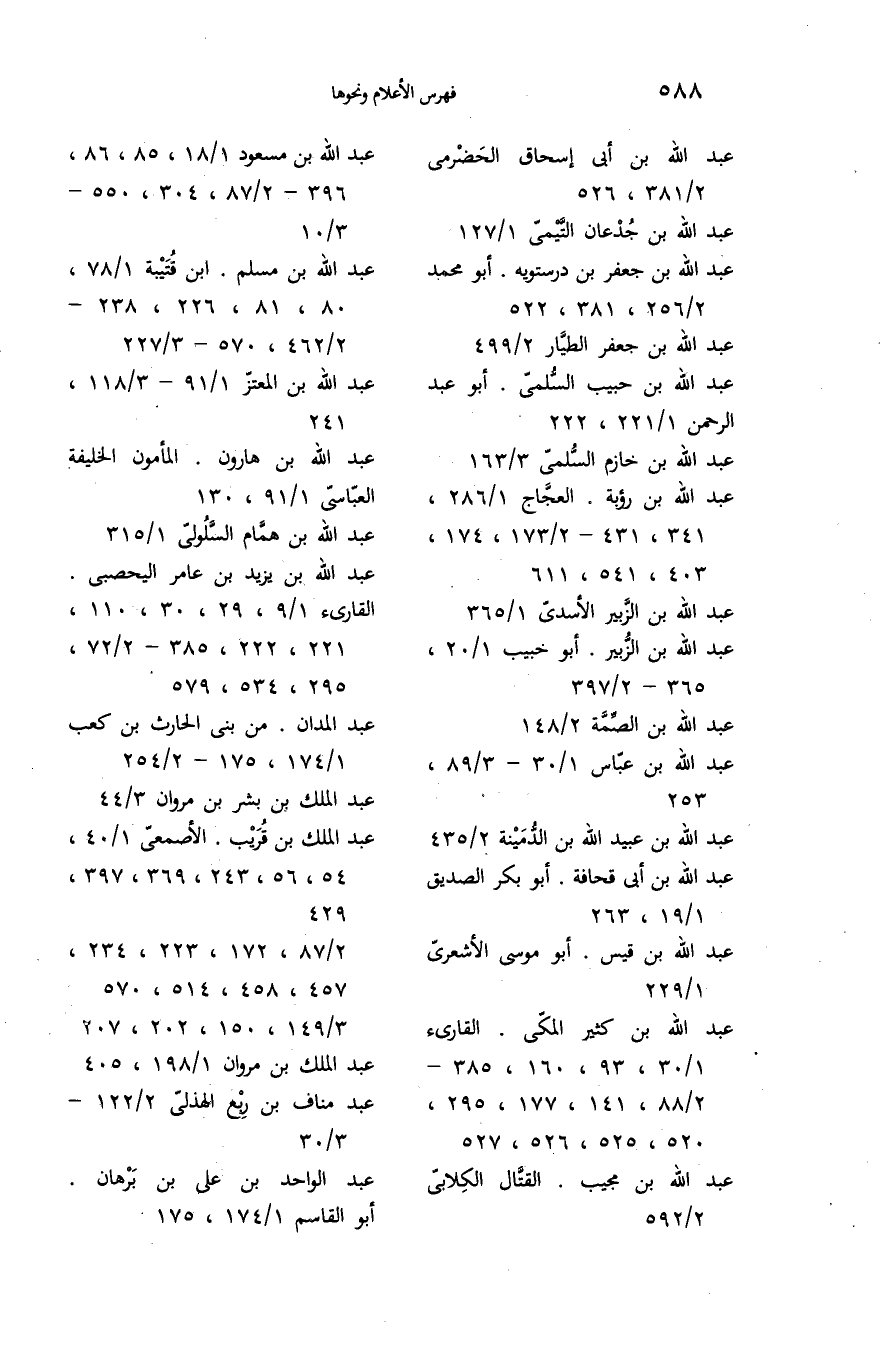 ٥٨٨
فهرس الأعلام ونحوها
عبد الله بن أبى إسحاق الحَضْرمى
٣٨١/٢ ، ٥٢٦
عبد الله بن جُدْعان التَّيْمىّ ١٢٧/١
عبد الله بن جعفر بن درستويه . أبو محمد
٢٥٦/٢ ، ٣٨١ ، ٥٢٢
عبد الله بن جعفر الطيَّار ٤٩٩/٢
عبد الله بن حبيب السُّلمىّ . أبو عبد
الرحمن ٢٢١/١ ، ٢٢٢
عبد الله بن خازم السُّلمىّ ١٦٣/٣
عبد الله بن رؤبة . العجَّاج ٢٨٦/١ ،
٣٤١ ، ٤٣١ – ١٧٣/٢ ، ١٧٤ ،
٤٠٣ ، ٥٤١ ، ٦١١
عبد الله بن الزَّبير الأسدىّ ٣٦٥/١
عبد الله بن الزُّبير . أبو خبيب ٢٠/١ ،
٣٦٥ – ٣٩٧/٢
عبد الله بن الصِّمَّة ١٤٨/٢
عبد الله بن عبّاس ٣٠/١ – ٨٩/٣ ،
٢٥٣
عبد الله بن عبيد الله بن الدُّمَيْنة ٤٣٥/٢
عبد الله بن أبى قحافة . أبو بكر الصديق
١٩/١ ، ٢٦٣
عبد الله بن قيس . أبو موسى الأشعرىّ
٢٢٩/١
عبد الله بن كثير المكّى . القارىء
٣٠/١ ، ٩٣ ، ١٦٠ ، ٣٨٥ –
٨٨/٢ ، ١٤١ ، ١٧٧ ، ٢٩٥ ،
٥٢٠ ، ٥٢٥ ، ٥٢٦ ، ٥٢٧
عبد الله بن مجيب . القتَّال الكِلابىّ
٥٩٢/٢
عبد الله بن مسعود ١٨/١ ، ٨٥ ، ٨٦ ،
٣٩٦ – ٨٧/٢ ، ٣٠٤ ، ٥٥٠ –
١٠/٣
عبد الله بن مسلم . ابن قُتَيْبة ٧٨/١ ،
٨٠ ، ٨١ ، ٢٢٦ ، ٢٣٨ –
٤٦٢/٢ ، ٥٧٠ – ٢٢٧/٣
عبد الله بن المعتزّ ٩١/١ – ١١٨/٣ ،
٢٤١
عبد الله بن هارون . المأمون الخليفة
العبّاسىّ ٩١/١ ، ١٣٠
عبد الله بن همَّام السَّلُولىّ ٣١٥/١
عبد الله بن يزيد بن عامر اليحصبى .
القارىء ٩/١ ، ٢٩ ، ٣٠ ، ١١٠ ،
٢٢١ ، ٢٢٢ ، ٣٨٥ – ٧٢/٢ ،
٢٩٥ ، ٥٣٤ ، ٥٧٩
عبد المدان . من بنى الحارث بن كعب
١٧٤/١ ، ١٧٥ – ٢٥٤/٢
عبد الملك بن بشر بن مروان ٤٤/٣
عبد الملك بن قُرَيْب . الأصمعىّ ٤٠/١ ،
٥٤ ، ٥٦ ، ٢٤٣ ، ٣٦٩ ، ٣٩٧ ،
٤٢٩
٨٧/٢ ، ١٧٢ ، ٢٢٣ ، ٢٣٤ ،
٤٥٧ ، ٤٥٨ ، ٥١٤ ، ٥٧٠
١٤٩/٣ ، ١٥٠ ، ٢٠٢ ، ٢٠٧
عبد الملك بن مروان ١٩٨/١ ، ٤٠٥
عبد مناف بن رِبْع الهذلىّ ١٢٢/٢ –
٣٠/٣
عبد الواحد بن على بن بَرْهان .
أبو القاسم ١٧٤/١ ، ١٧٥